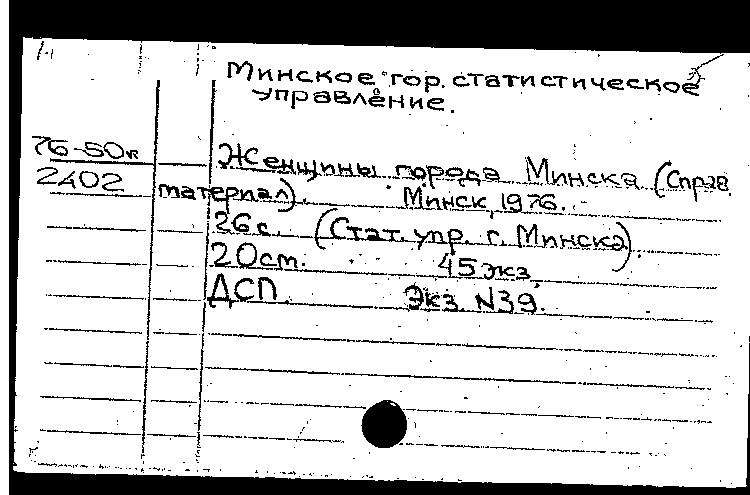 Минское гор. статистическое
управление.
76-50к
2402
Женщины города Минска (Справ.
материал). Минск, 1976.
26 с. (Стат. упр. г. Минска).
20 см. 45 экз.
ДСП. Экз. N39.